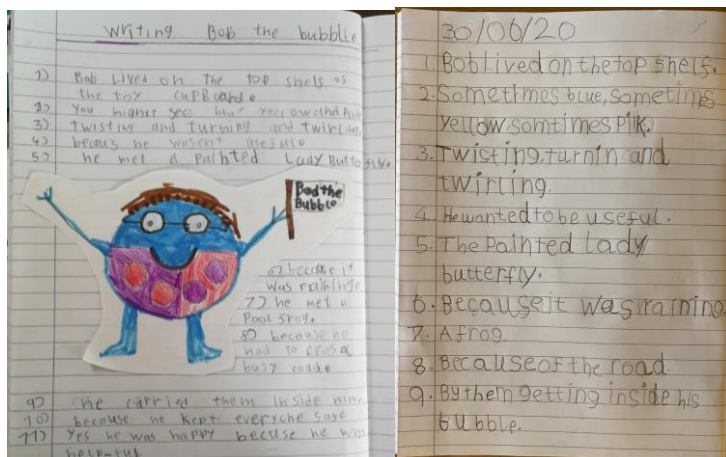 writing Bob the bubble
1) Bob Lived on The top shels of
the toy cupBoard.
2) You higher see blu yellowethd
3) twisting and turning and twirling
4) becaus he wasent usesule
5) he met a Painted Lady Butte
Bod the
Bubbco
6) because it
was raininge
7) he met u
Pool srog.
8) because he
had to cros a
busy roade
9) he carried them inside him
10) because he kept everyche sase
11) Yes he was happy becuse he was
helpful
30/06/20
1. Bob lived on the top shelf.
2. Sometimes blue, sometims
yellow, somtimes Pik.
3. Twisting, turnin and
twirling.
4. He wanted to be useful.
5. The Painted lady
butterfly.
6. Because it was raining
7. A frog.
8. Because of the road.
9. By them getting inside his
bubble.